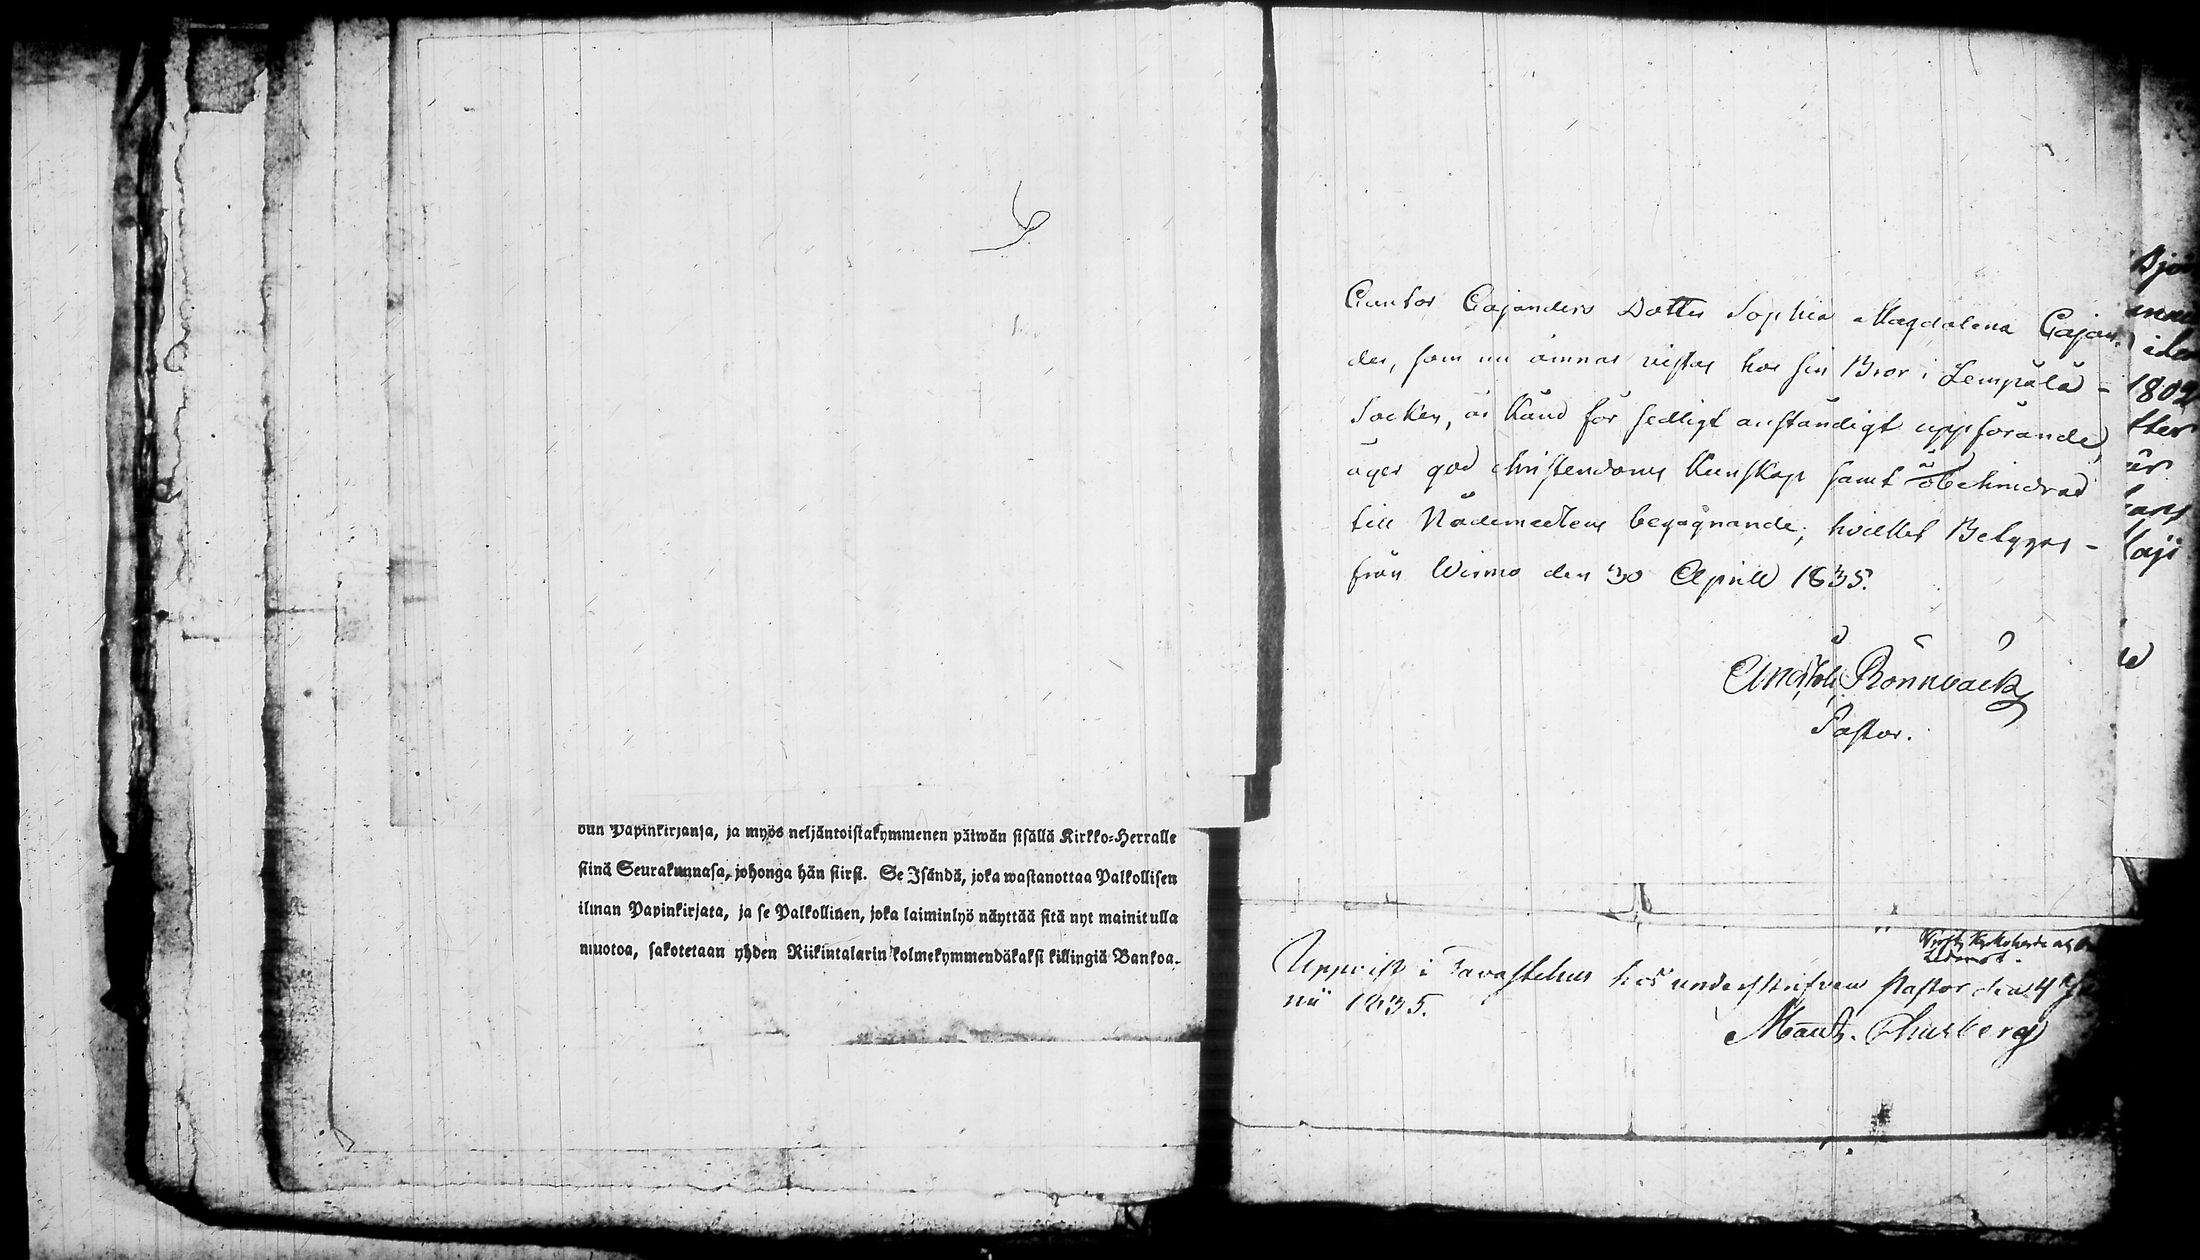 dun Papinkirjansa, ja myös neljäntoistakymmenen päiwän sisällä Kirkko-Herralle
siinä Seurakunnasa, johonga hän siirsi. Se Isändä, joka wastanottaa Palkollisen
ilman Papinkirjata, ja se Palkollinen, joka laiminlyö näyttää sitä nyt mainitulla
muotoa, sakotetaan yhden Riikintalarin kolmekymmendäkaksi killingiä Bankoa.
Cantor Cajanders Dotter Sophia Magdalena Cajan-
der, som nu ämnar vistas hos sin Bror i Lempälä-
Socken, är känd för sedligt anständigt uppförande,
äger god christendoms kunskap samt är obehindrad
till Nådemedlens begagnande, hvilket Betygas-
från Wirmo den 30 Aprill 1835.
Rönnback
Pastor.
Uppvist i Tavastehus hos underskrifven Pastor den 4
nii 1835.
1802